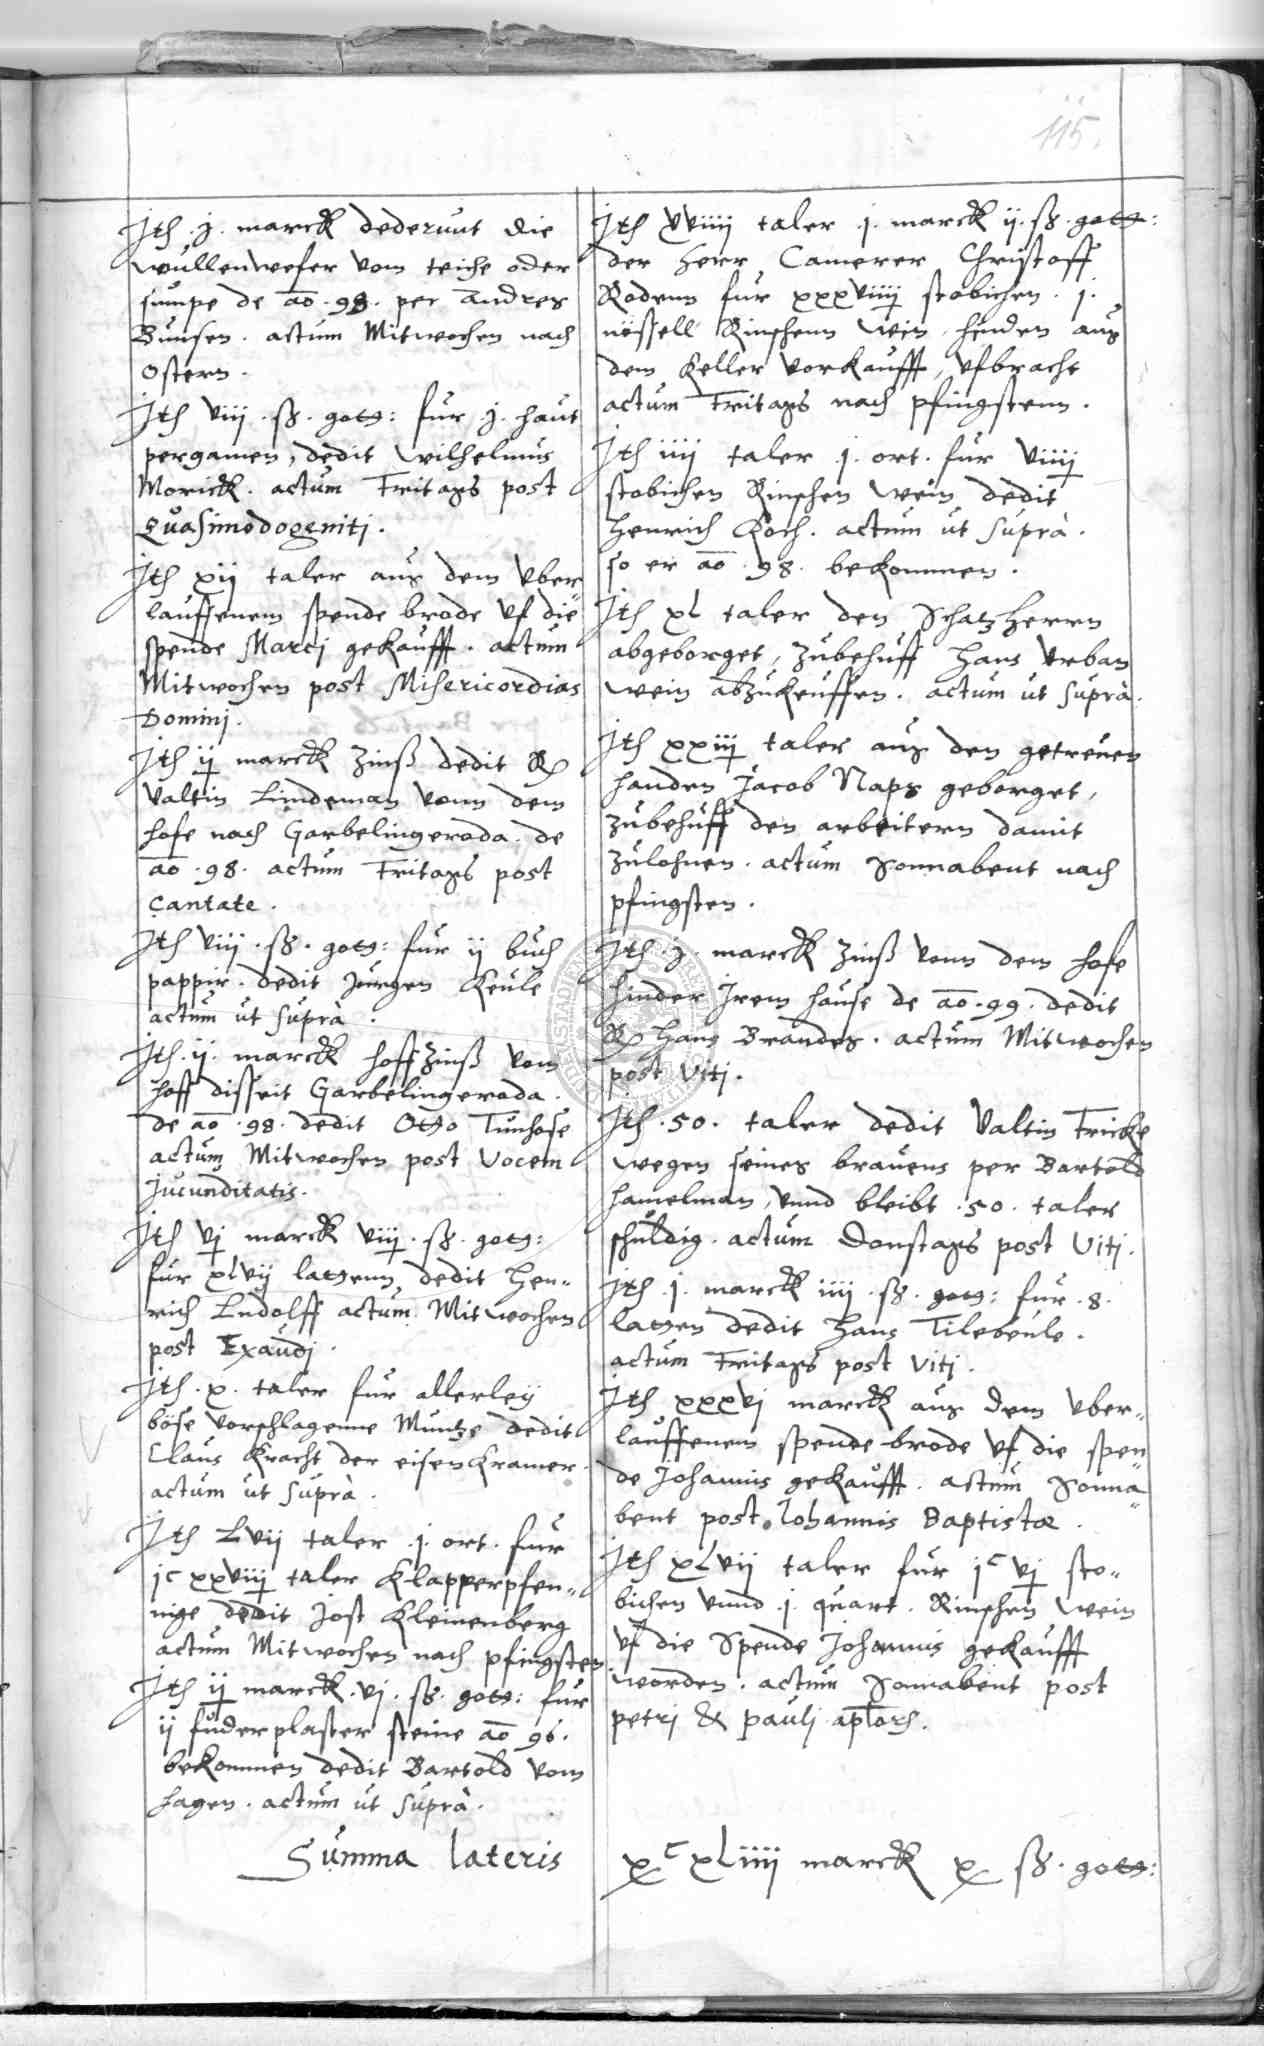 115.
Jth .j. marck dederunt die
wullenwefer vom teiche oder
sumpe de ao .98. per Andres
Bunsen . actum Mitwochen nach
Ostern .
Jth viij .ß. gots: fur j. haut
pergamen, dedit Wilhelmus
Morick . actum Fritags post
Quasimodogeniti .
Jth xij taler aus dem vber
lauffenem spende brode vf die
spende Marcj gekaufft . actum
Mitwochen post Misericordias
Dominj .
Jth ij marck Zinß dedit R
Valtin Lindeman vonn dem
hofe nach Garbelingeroda . de
ao .98. actum Fritags post
Cantate .
Jth viij .ß. gots: fur ij buch
pappir . dedit Jurgen Keule
actum ut suprà .
Jth .ij. marck hoffzinß vom
hoff disseit Garbelingeroda .
de ao .98. dedit Otto Tunhose
actum Mitwochen post Vocem
Jucunditatis .
Jth vj marck viij .ß. gots:
fur xlvij latzenn dedit Hen„
rich Ludolff actum Mitwochen
post Exaudj .
Jth .x. taler fur allerleij
böse vorschlagenne Muntze dedit
Claus Kracht der eisenkramer .
actum ut suprà .
Jth Lvij taler .j. ort . fur
jc xxviij taler Klapperpfen„
nige dedit Jost Kleinenberg
actum Mitwochen nach pfingsten
Jth ij marck .vj. ß. gots: fur
ij fuder plaster steine ao 96.
bekommen dedit Bartold vom
hagen . actum ut suprà .
Jth xviiij taler .j. marck ij .ß. gots:
der Herr Camerer Christoff
Rodenn fur xxxviiij stobichen . j.
nössell Rinschenn wein, hinden aus
dem Keller vorkaufft, vfbracht
actum Fritags nach pfingstenn .
Jth iiij taler .j. ort . fur viiij
stobichen Rinschen wein dedit
Henrich Koch . actum ut suprà .
so er ao .98. bekommen .
Jth xl taler den Schatz Herrn
abgeborget, zubehuff Hans Vrban
wein abzukeuffen . actum ut suprà .
Jth xxiij taler aus den getreuen
handen Jacob Naps geborget,
zubehuff den arbeitern damit
zulohnen . actum Sonnabent nach
pfingsten .
Jth .j. marck Zinß vonn dem hofe
hinder Jrem hause de ao .99. dedit
R Hans Brandes . actum Mitwochen
post Vitj .
Jth .50. taler dedit Valtin Fricke
wegen seines brauens per Bartold
Hamelman, vnnd bleibt .50. taler
schuldig . actum Donstags post Vitj .
Jth .j. marck iiij .ß. gots: fur .8.
latzen dedit Hans Tilebeule .
actum Fritags post Vitj .
Jth xxxvj marck aus dem vber„
lauffenem spende-brode vf die spen„
de Johannis gekaufft . actum Sonna„
bent post Johannis Baptistæ .
Jth xLvij taler fur jc vj sto„
bichen vnnd .j. quart . Rinschen wein
vf die Spende Johannis gekaufft
worden . actum Sonnabent post
petrj & paulj aplorh .
Summa lateris xc xLiiij marck x ß. gots: